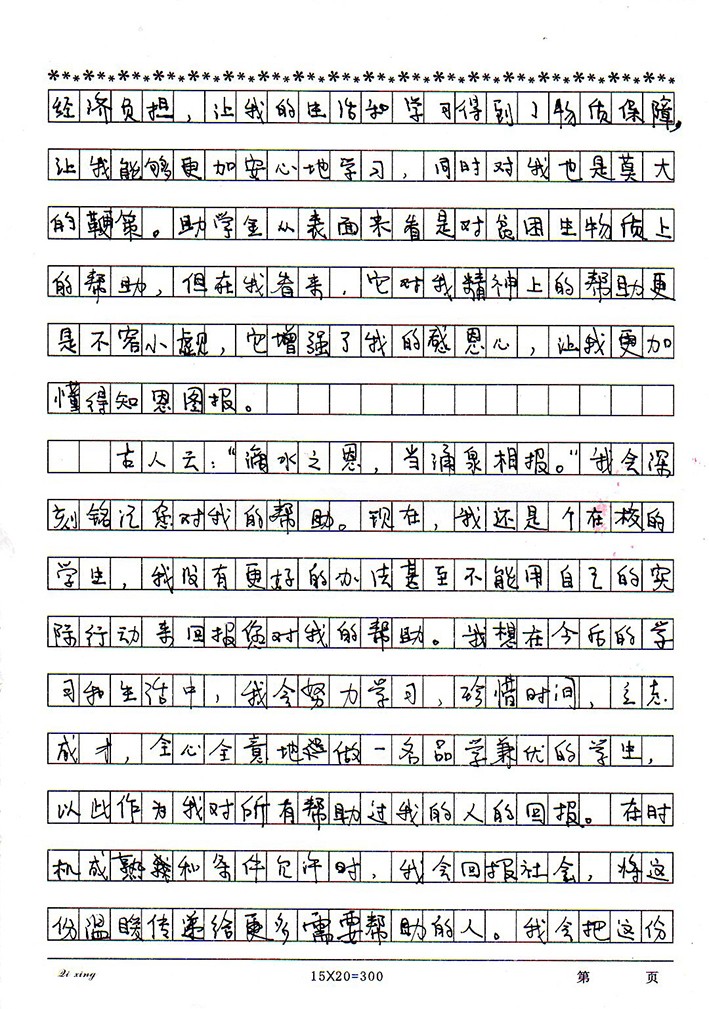 经济负担，让我的生活和学习得到了物质保障，
让我能够更加安心地学习，同时对我也是莫大
的鞭策。助学金从表面来看是对贫困生物质上
的帮助，但在我看来，它对我精神上的帮助更
是不容小觑，它增强了我的感恩心，让我更加
懂得知恩图报。
古人云：“滴水之恩，当涌泉相报。”我会深
刻铭记您对我的帮助。现在，我还是个在校的
学生，我没有更好的办法甚至不能用自己的实
际行动来回报您对我的帮助。我想在今后的学
习和生活中，我会努力学习，珍惜时间，立志
成才，全心全意地做一名品学兼优的学生，
以此作为我对所有帮助过我的人的回报。在时
机成熟和条件允许时，我会回报社会，将这
份温暖传递给更多需要帮助的人。我会把这份
Qi xing 15X20=300 第 页